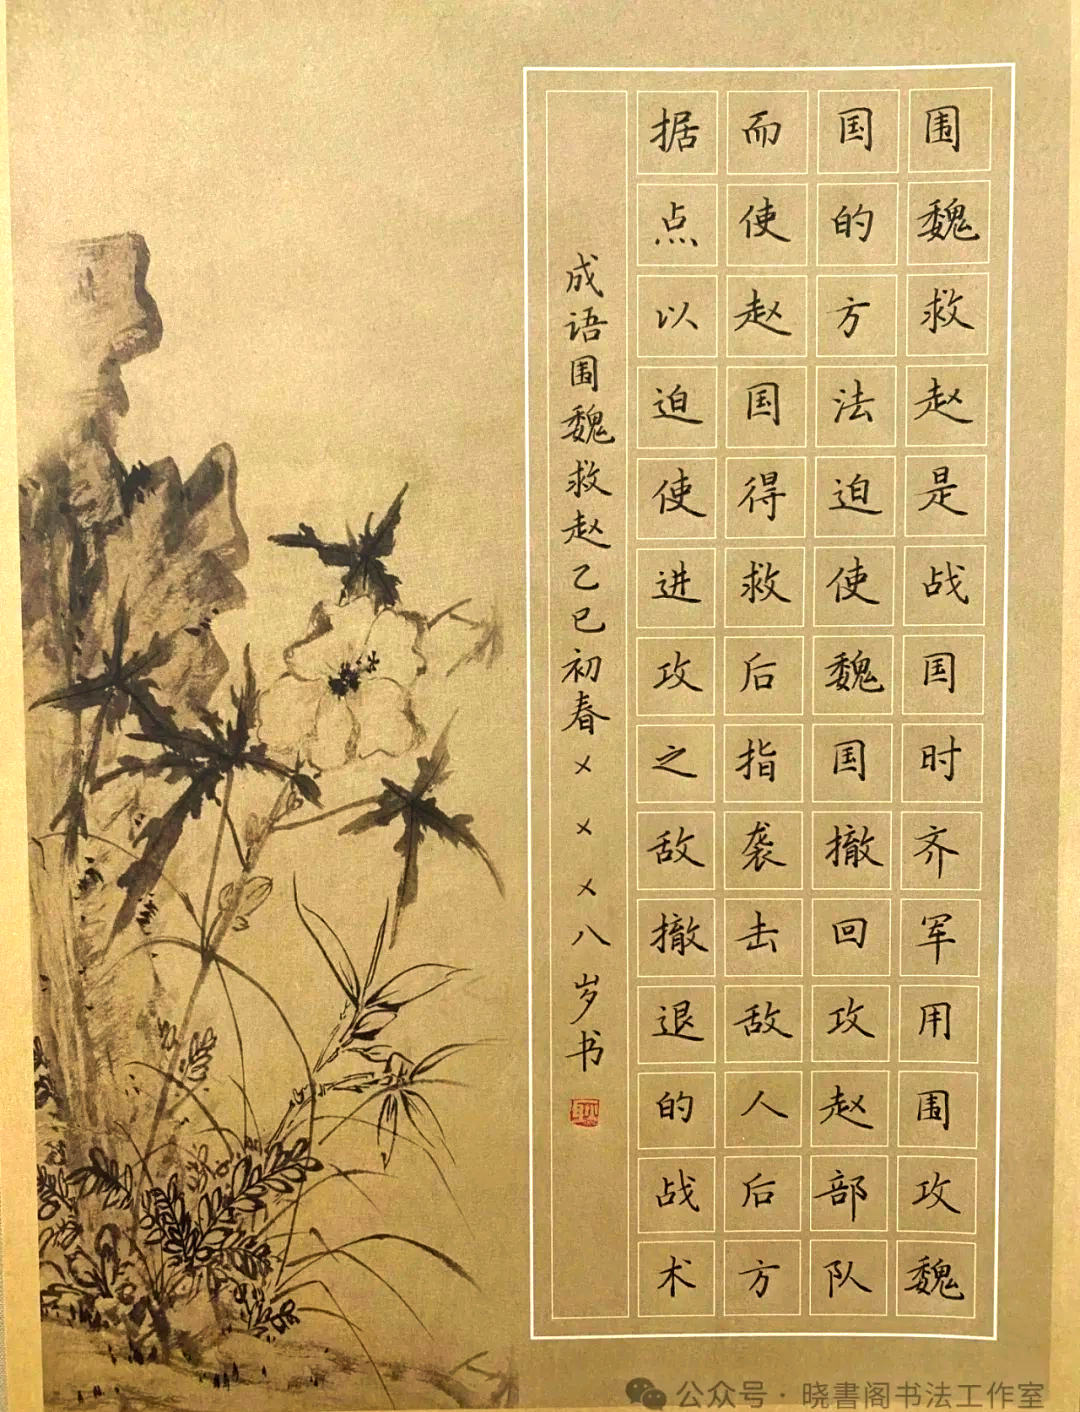 围魏救赵是战国时齐军用围攻魏
国的方法迫使魏国撤回攻赵部队
而使赵国得救后指袭击敌人后方
据点以迫使进攻之敌撤退的战术
成语围魏救赵乙巳初春×××八岁书
公众号·晓書阁书法工作室